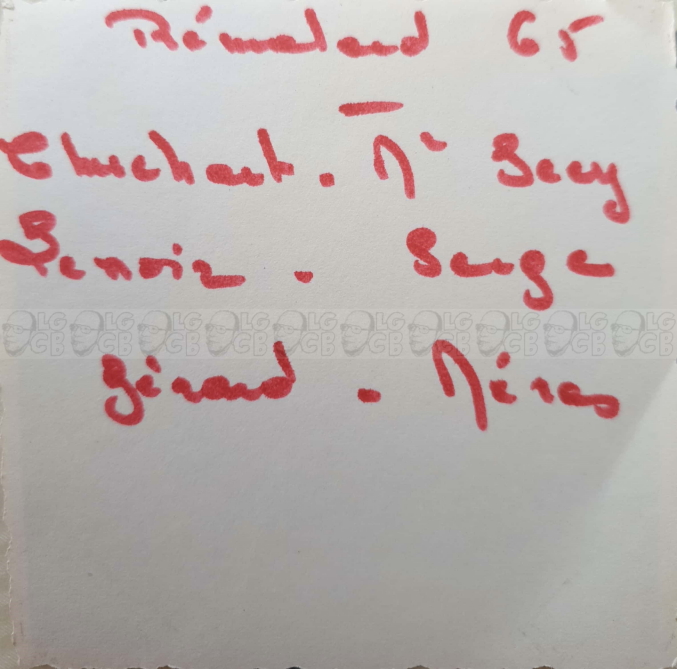 Rémalard 65
—
Chuchart. Mr Secy
Lenoir. Serge
Gérard. Méras
LG CB LG CB LG CB LG CB LG CB LG CB LG CB LG CB LG CB LG CB